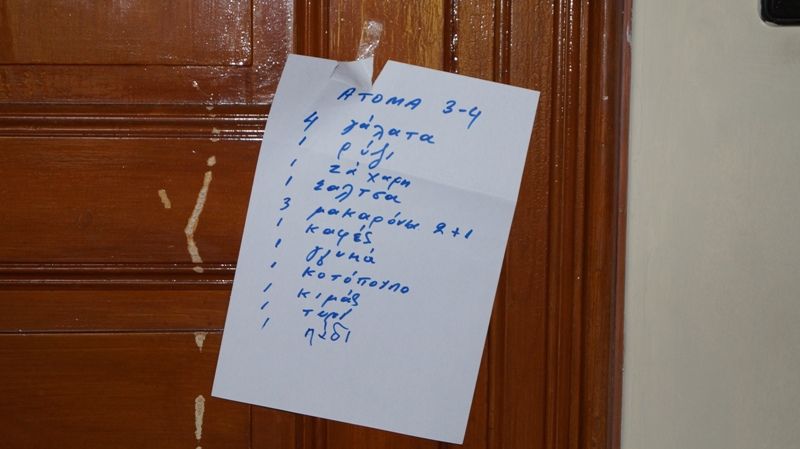 ΑΤΟΜΑ 3-4
4 γάλατα
1 ρύζι
1 ζάχαρη
1 σαλτσα
3 μακαρόνια 2+1
1 καφές
1 γλυκά
1 κοτόπουλο
1 κιμάς
1 τυρί
1